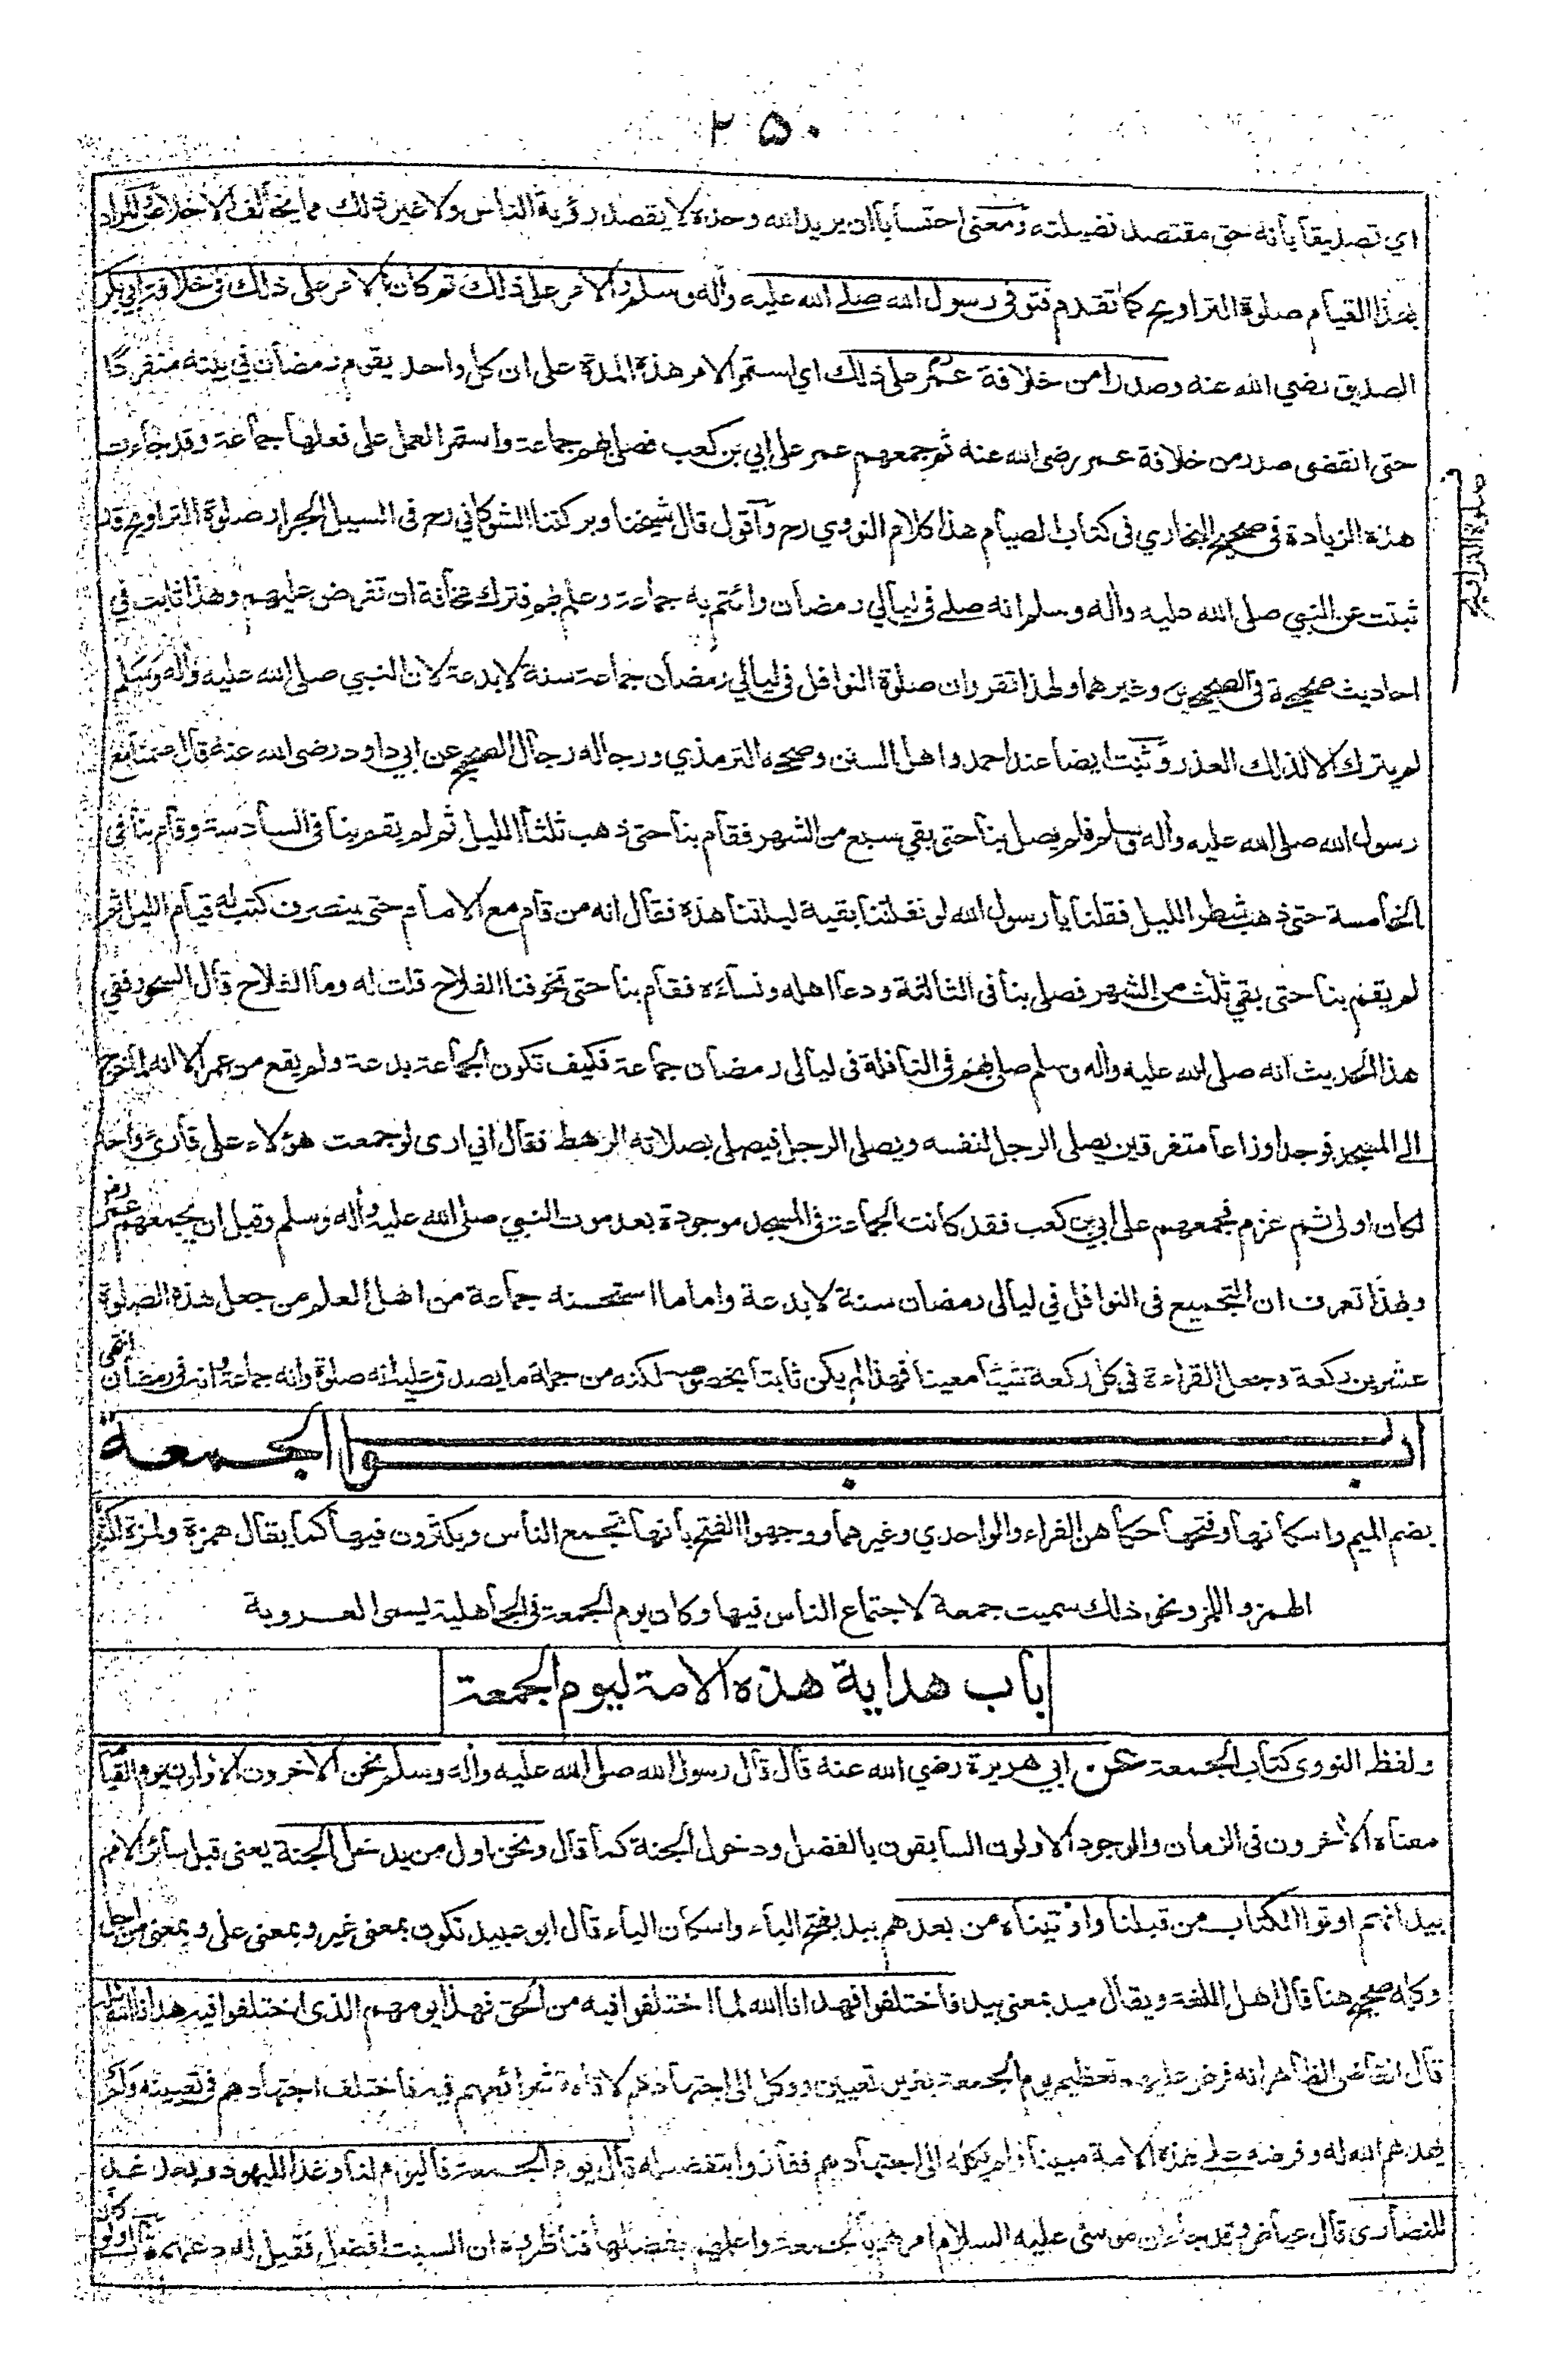 ٢٥٠
اي تصديقا بانه حق مقتصد فضيلته ومعنى احتسابا ان يريد الله وحده لا يقصد رؤية الناس ولا غير ذلك مما يخالف الاخلاص والمراد
بهذا القيام صلوة التراويح كما تقدم فتوفي رسول الله صلى الله عليه واله وسلم والامر على ذلك ثم كان الامر على ذلك في خلافة ابي بكر
الصديق رضي الله عنه وصدرا من خلافة عمر على ذلك اي استمر الامر هذه المدة على ان كل واحد يقوم رمضان في بيته منفردا
حتى انقضى صدر من خلافة عمر رضي الله عنه ثم جمعهم عمر على ابي بن كعب فصلى بهم جماعة واستمر العمل على فعلها جماعة وقد جاءت
هذه الزيادة في صحيح البخاري في كتاب الصيام هذا كلام النووي رح وأقول قال شيخنا وبركتنا الشوكاني رح في السيل الجرار صلوة التراويح قد
ثبتت عن النبي صلى الله عليه واله وسلم انه صلى في ليالي رمضان وائتم به جماعة وعلم بهم فترك مخافة ان تفرض عليهم وهذا ثابت في
احاديث صحيحة في الصحيحين وغيرهما ولهذا تقرر ان صلوة النوافل في ليالي رمضان جماعة سنة لا بدعة لان النبي صلى الله عليه واله وسلم
لم يترك الا لذلك العذر وثبت ايضا عند احمد واهل السنن وصححه الترمذي ورجاله رجال الصحيح عن ابي داود رضي الله عنه قال صمنا مع
رسول الله صلى الله عليه واله وسلم فلم يصل بنا حتى بقي سبع من الشهر فقام بنا حتى ذهب ثلث الليل ثم لم يقم بنا في السادسة وقام بنا في
الخامسة حتى ذهب شطر الليل فقلنا يا رسول الله لو نفلتنا بقية ليلتنا هذه فقال انه من قام مع الامام حتى ينصرف كتب له قيام الليل ثم
لم يقم بنا حتى بقي ثلث من الشهر فصلى بنا في الثالثة ودعا اهله ونساءه فقام بنا حتى تخوفنا الفلاح قلت له وما الفلاح قال السحور ففي
هذا الحديث انه صلى الله عليه واله وسلم صلى بهم في النافلة في ليالي رمضان جماعة فكيف تكون الجماعة بدعة ولم يقع من عمر الا انه لما خرج
الى المسجد فوجد اوزاعا متفرقين يصلى الرجل لنفسه ويصلى الرجل فيصلى بصلاته الرهط فقال اني ارى لو جمعت هؤلاء على قارئ واحد
لكان اولى ثم عزم فجمعهم على ابي بن كعب فقد كانت الجماعة في المسجد موجودة بعد موت النبي صلى الله عليه واله وسلم وقبل ان يجمعهم عمر رض
وبهذا تعرف ان التجميع في النوافل في ليالي رمضان سنة لا بدعة واما ما استحسنه جماعة من اهل العلم من جعل هذه الصلوة
عشرين ركعة وجعل القراءة في كل ركعة شيئا معينا فهذا لم يكن ثابتا بخصوصه لكنه من جملة ما يصدق عليه انه صلوة وانه جماعة وانه في رمضان انتهى
صلوة التراويح
ابواب الجمعة
بضم الميم واسكانها وفتحها حكاهن الفراء والواحدي وغيرهما ووجهوا الفتح بانها تجمع الناس ويكثرون فيها كما يقال همزة ولمزة لكثير
الهمز واللمز ونحو ذلك سميت جمعة لاجتماع الناس فيها وكان يوم الجمعة في الجاهلية يسمى العروبة
باب هداية هذه الامة ليوم الجمعة
ولفظ النووى كتاب الجمعة عن ابي هريرة رضي الله عنه قال قال رسول الله صلى الله عليه واله وسلم نحن الاخرون الاولون يوم القيامة
معناه الاخرون في الزمان والوجود الاولون السابقون بالفضل ودخول الجنة كما قال ونحن اول من يدخل الجنة يعني قبل سائر الامم
بيد انهم اوتوا الكتاب من قبلنا واوتيناه من بعدهم بيد بفتح الباء واسكان الياء قال ابو عبيد تكون بمعنى غير وبمعنى على وبمعنى من اجل
وكله صحيح هنا قال اهل اللغة ويقال ميد بمعنى بيد فاختلفوا فهدانا الله لما اختلفوا فيه من الحق فهذا يومهم الذى اختلفوا فيه هدانا الله له
قال القاضى الظاهر انه فرض عليهم تعظيم يوم الجمعة بغير تعيين ووكل الى اجتهادهم لاقامة شرائعهم فيه فاختلف اجتهادهم في تعيينه ولم
يهدهم الله له وفرضه على هذه الامة مبينا ولم يكله الى اجتهادهم ففازوا بتفضيله قال يوم الجمعة فاليوم لنا وغدا لليهود وبعد غد
للنصارى قال عياض وقد جاء ان موسى عليه السلام امرهم بالجمعة واعلمهم بفضلها فناظروه ان السبت افضل فقيل له دعهم